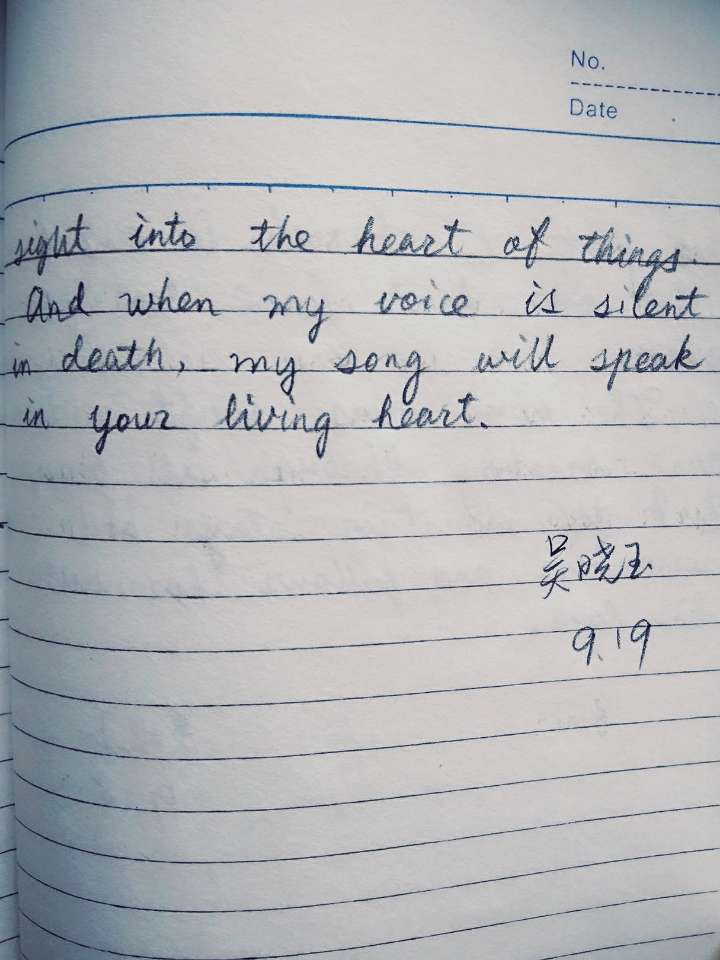 No.
Date
sight into the heart of things.
And when my voice is silent
in death, my song will speak
in your living heart.
吴晓玉
9.19